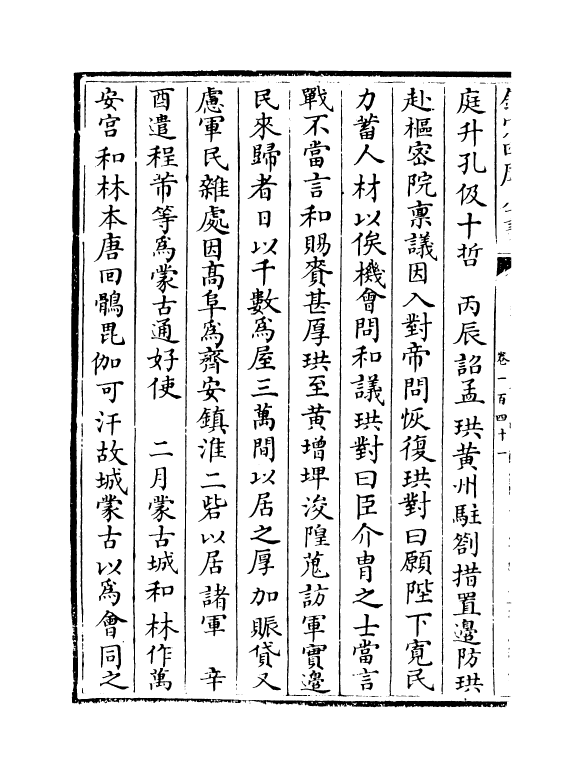 庭升孔伋十哲　丙辰詔孟珙黄州駐劄措置邊防珙
赴樞密院禀議因入對帝問恢復珙對曰願陛下寛民
力蓄人材以俟機會問和議珙對曰臣介胄之士當言
戰不當言和賜賚甚厚珙至黄增埤浚隍蒐訪軍實邊
民來歸者日以千數為屋三萬間以居之厚加賑貸又
慮軍民雜處因髙阜為齊安鎮淮二砦以居諸軍　辛
酉遣程芾等為蒙古通好使　二月蒙古城和林作萬
安宫和林本唐回鶻毘伽可汗故城蒙古以為會同之
卷一百四十一